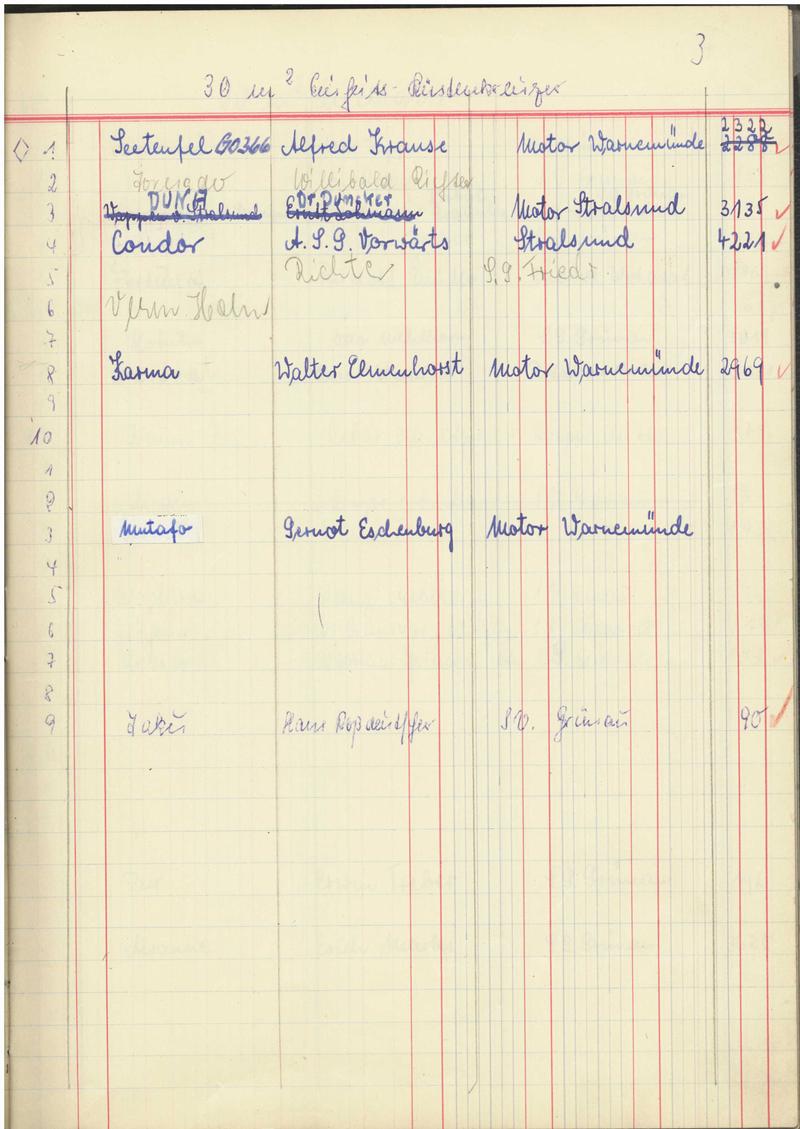 3
30 m² Einheits-Küstenkreuzer
1 Seeteufel GO366 Alfred Krause Motor Warnemünde 2322 2288
2 Willibald Richter
DUNJA Dr. Duncker
3 Wappen v. Stralsund Ernst Motor Stralsund 3135
4 Condor A.S.G. Vorwärts Stralsund 4221
5 Richter S.G. Friedr.
6
7
8 Karma Walter Elmenhorst Motor Warnemünde 2969
9
10
1
2
3 Mutafo Gernot Eschenburg Motor Warnemünde
4
5
6
7
8
9 Hans Roßdeutscher SV. Grünau 90